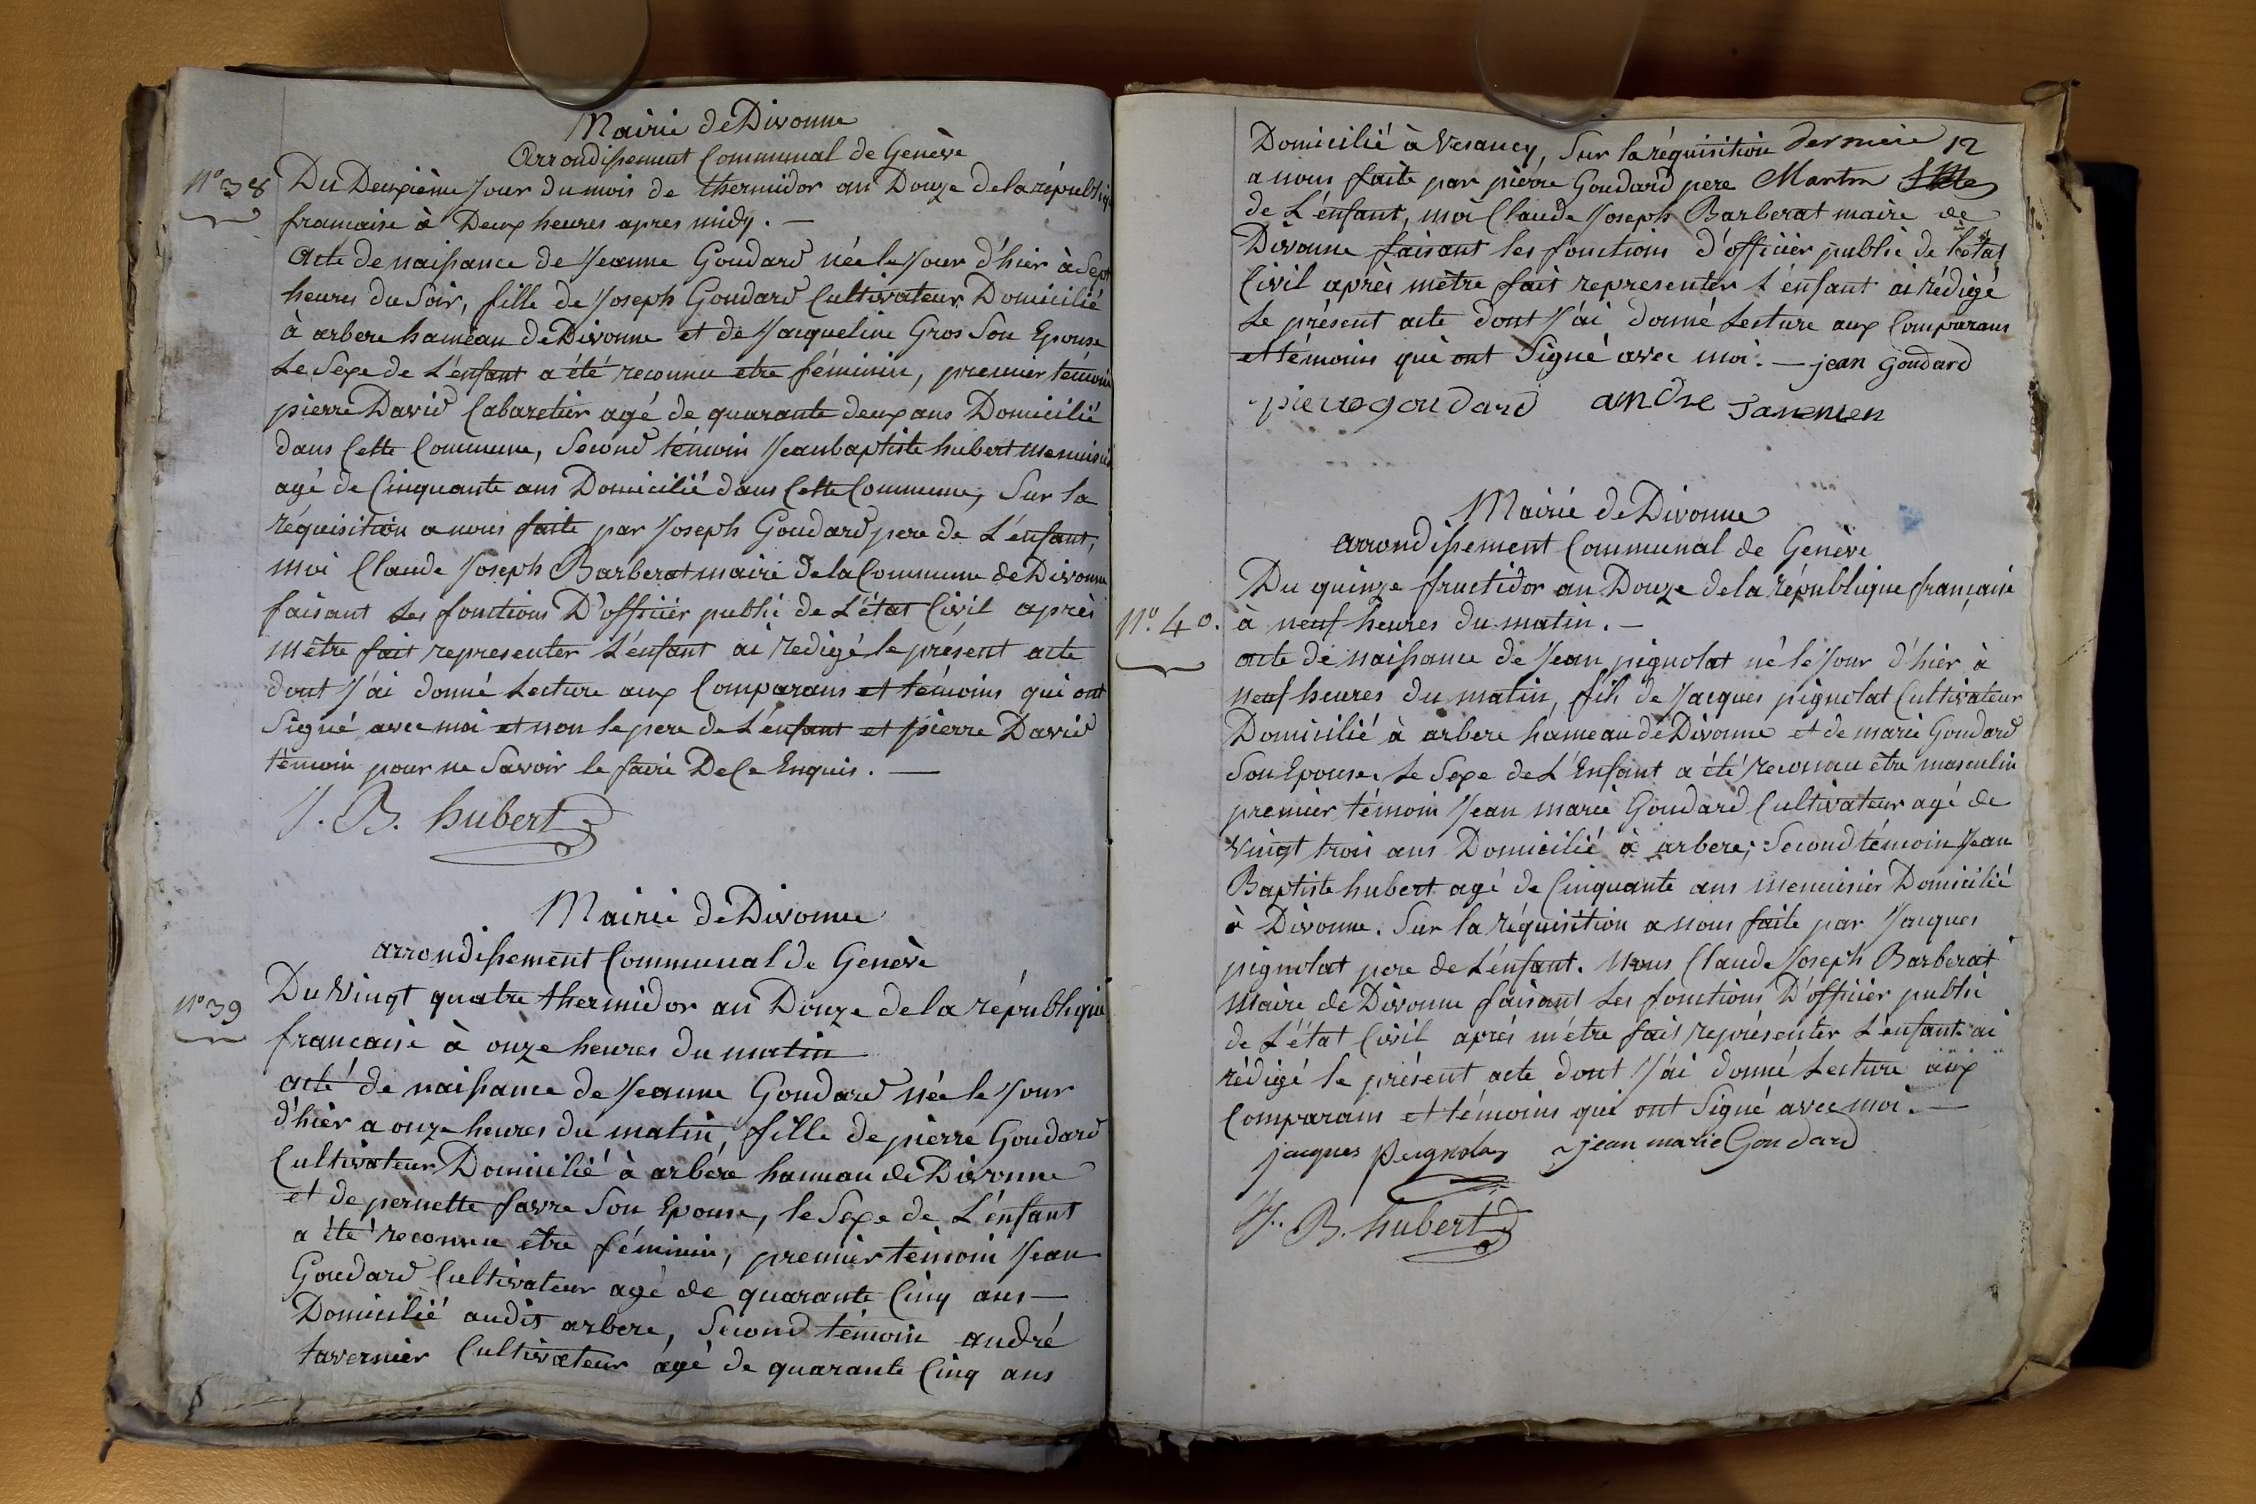 Mairie de Divonne
Arrondissement Communal de Genève
N° 38
Du Deuxième Jour du mois de thermidor an Douze de la républiq
francaise à Deux heures apres midy. —
Acte de naissance de Jeanne Goudard née le Jour d'hier à Sept
heures du Soir, fille de Joseph Goudard Cultivateur Domicilié
à arbere hameau de Divonne et de Jacqueline Gros Son Epouse
Le Sexe de L'énfant a été reconnu etre féminin, premier témoin
pierre David Cabaretier agé de quarante deux ans Domicilié
dans Cette Commune, Second témoin Jean baptiste hubert menuisier
agé de Cinquante ans Domicilié dans Cette Commune, Sur la
réquisition a nous faite par Joseph Goudard pere de L'énfant,
moi Claude Joseph Barberat maire de la Commune de Divonne
faisant Les fonctions D'officier public de L'état Civil après
mêtre fait representer L'énfant ai rédigé le présent acte
dont J'ai donné Lecture aux Comparans et témoins qui ont
Signé avec moi et non le pere de L'énfant et pierre David
témoin pour ne Savoir le faire De Ce Enquis. —
J. B. hubert
Mairie de Divonne
arrondissement Communal de Genève
N° 39
Du Vingt quatre thermidor an Douze de la républiqui
francaise à onze heures du matin
acte de naissance de Jeanne Goudard née le Jour
d'hier a onze heures du matin, fille de pierre Goudard
Cultivateur Domicilié à arbére hameau de Divonne
et de pernette favre Son Epouse, le Sexe de L'énfant
a été reconnu être féminin, premier témoin Jean
Goudard Cultivateur agé de quarante Cinq ans —
Domicilié audit arbere, Second témoin andré
tavernier Cultivateur ágé de quarante Cinq ans
Domicilié à Vesancy, Sur la réquisition
a nous faite par pierre Goudard pere Martin
de L'énfant, moi Claude Joseph Barberat maire de
Divonne faisant les fonctions d'officier public de L'état
Civil après mêtre fait representer L'énfant ai rédigé
Le présent acte dont J'ai donné Lecture aux Comparans
et témoins qui ont Signé avec moi. — jean Goudard
pierre goudard andre
Mairie de Divonne
arrondissement Communal de Genève
Du quinze fructidor an Douze de la république française
N° 40. à neuf heures du matin. —
acte de naissance de Jean pignolat né le Jour d'hier à
neuf heures du matin, fils de Jacques pignolat Cultivateur
Domicilié à arbere hameau de Divonne et de marie Goudard
Son Epouse. Le Sexe de L'Enfant a été reconnu être masculin
premier témoin Jean marie Goudard Cultivateur agé de
Vingt trois ans Domicilié à arbere; Second témoin Jean
Baptiste hubert agé de Cinquante ans menuisier Domicilié
à Divonne. Sur la réquisition a nous faite par Jacques
pignolat pere de L'énfant. Nous Claude Joseph Barberat
Maire de Divonne faisant Les fonctions D'officier public
de L'état Civil après m'étre fait représenter L'enfant ai
rédigé le présent acte dont J'ai donné Lecture aux
Comparans et témoins qui ont Signé avec moi. —
jacques jean marie Goudard
J. B. hubert